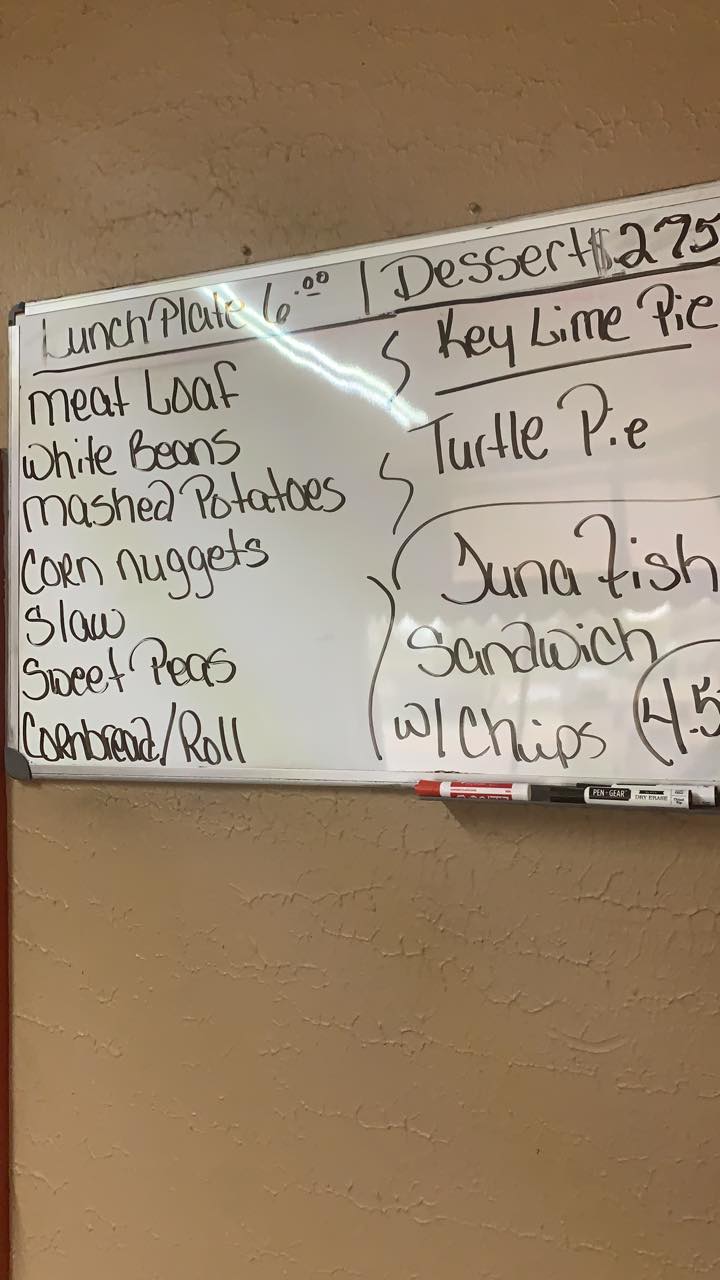 Lunch Plate 6.00 | Dessert $2.75
meat Loaf
White Beans
mashed Potatoes
Corn nuggets
Slaw
Sweet Peas
Cornbread/Roll
Key Lime Pie
Turtle Pie
Tuna Fish
Sandwich
w/ Chips 4.5
PEN+GEAR DRY ERASE